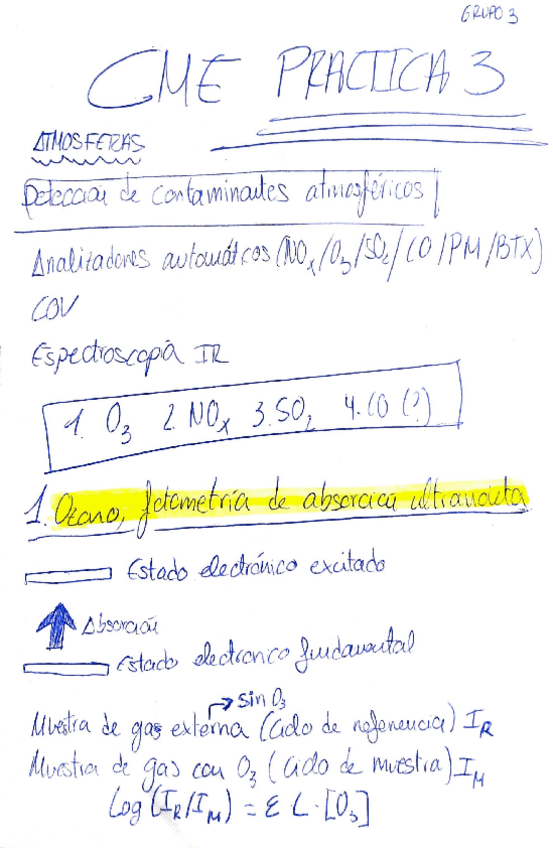 GRUPO 3
CME PRACTICA 3
ATMOSFERAS
Detección de contaminantes atmosféricos
Analizadores automáticos (NOx/O3/SO2/CO/PM/BTX)
COV
Espectroscopía IR
1. O3 2. NOx 3. SO2 4. CO (?)
1. Ozono, fotometría de absorción ultravioleta
Estado electrónico excitado
Absorción
Estado electronico fundamental
→ sin O3
Muestra de gas externa (Ciclo de referencia) IR
Muestra de gas con O3 (Ciclo de muestra) IM
Log (IR/IM) = ε L · [O3]